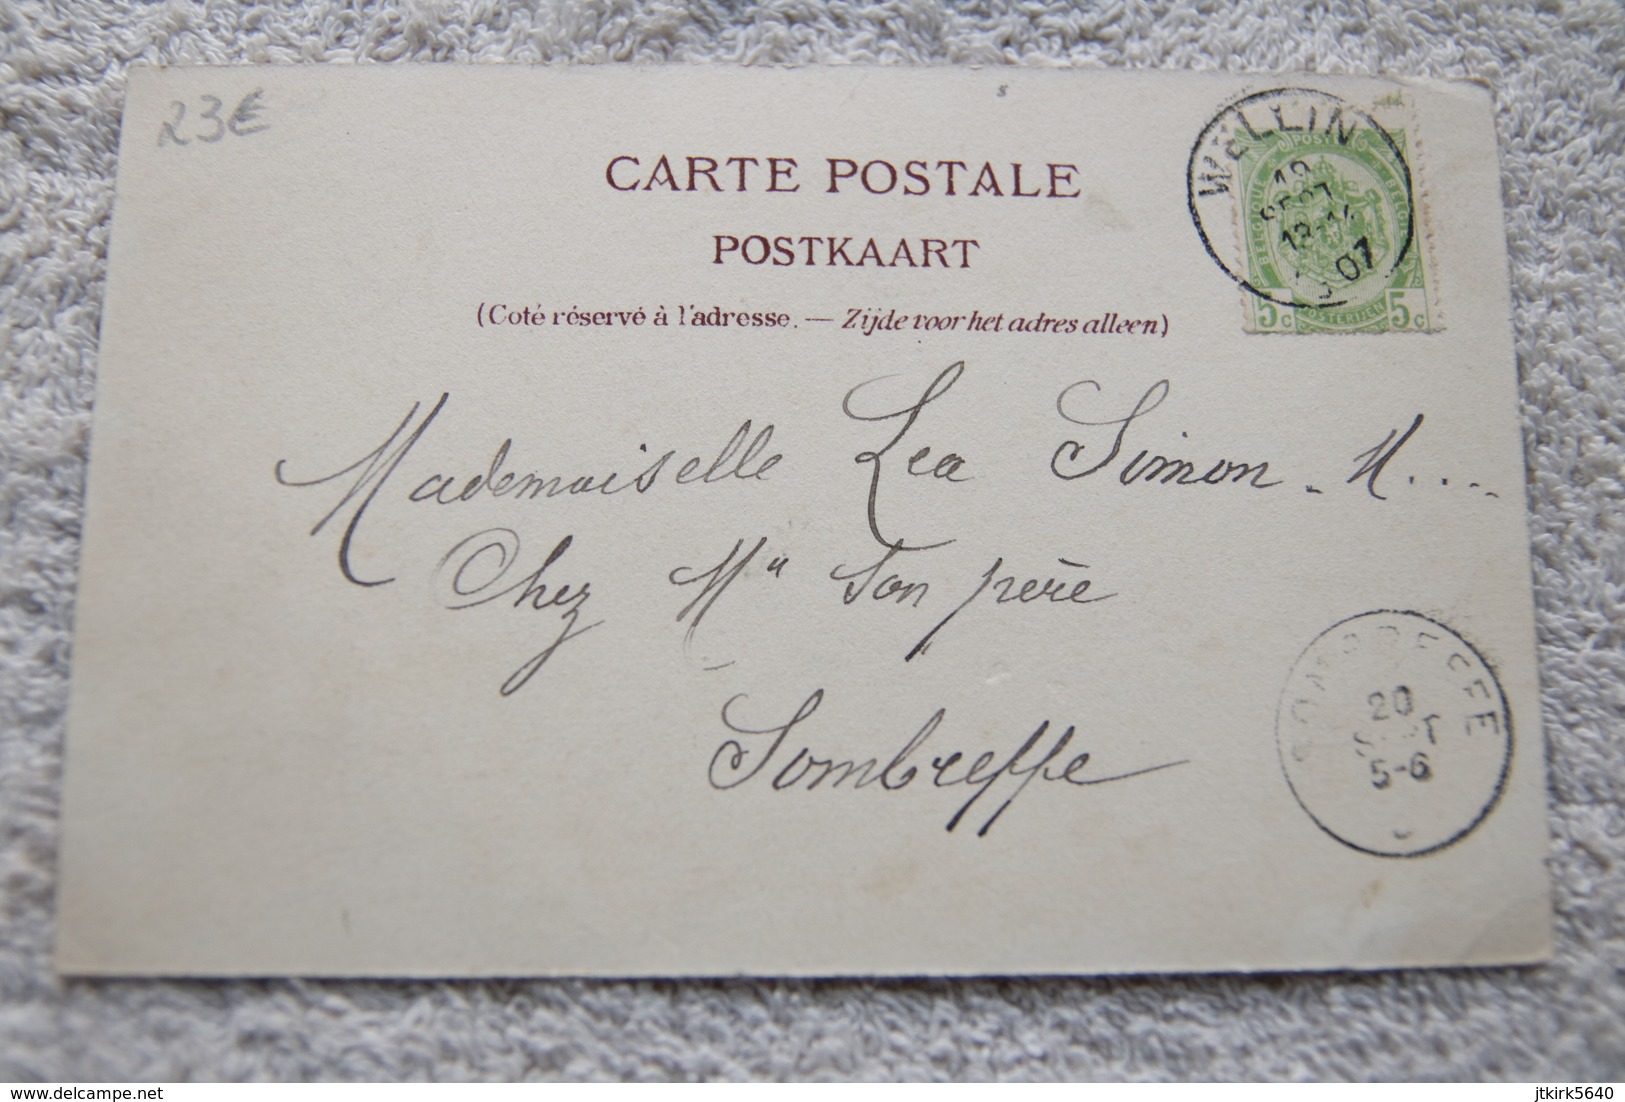 23€
CARTE POSTALE
POSTKAART
(Coté réservé à l'adresse. — Zijde voor het adres alleen)
WELLIN
19
SEPT
13-14
07
POST
BELGIQUE
BELGIË
POSTERIJEN
5c 5c
Mademoiselle Lea Simon - M....
Chez Mr Son père
Sombreffe
SOMBREFFE
20
SEPT
5-6
delcampe.net
jtkirk5640